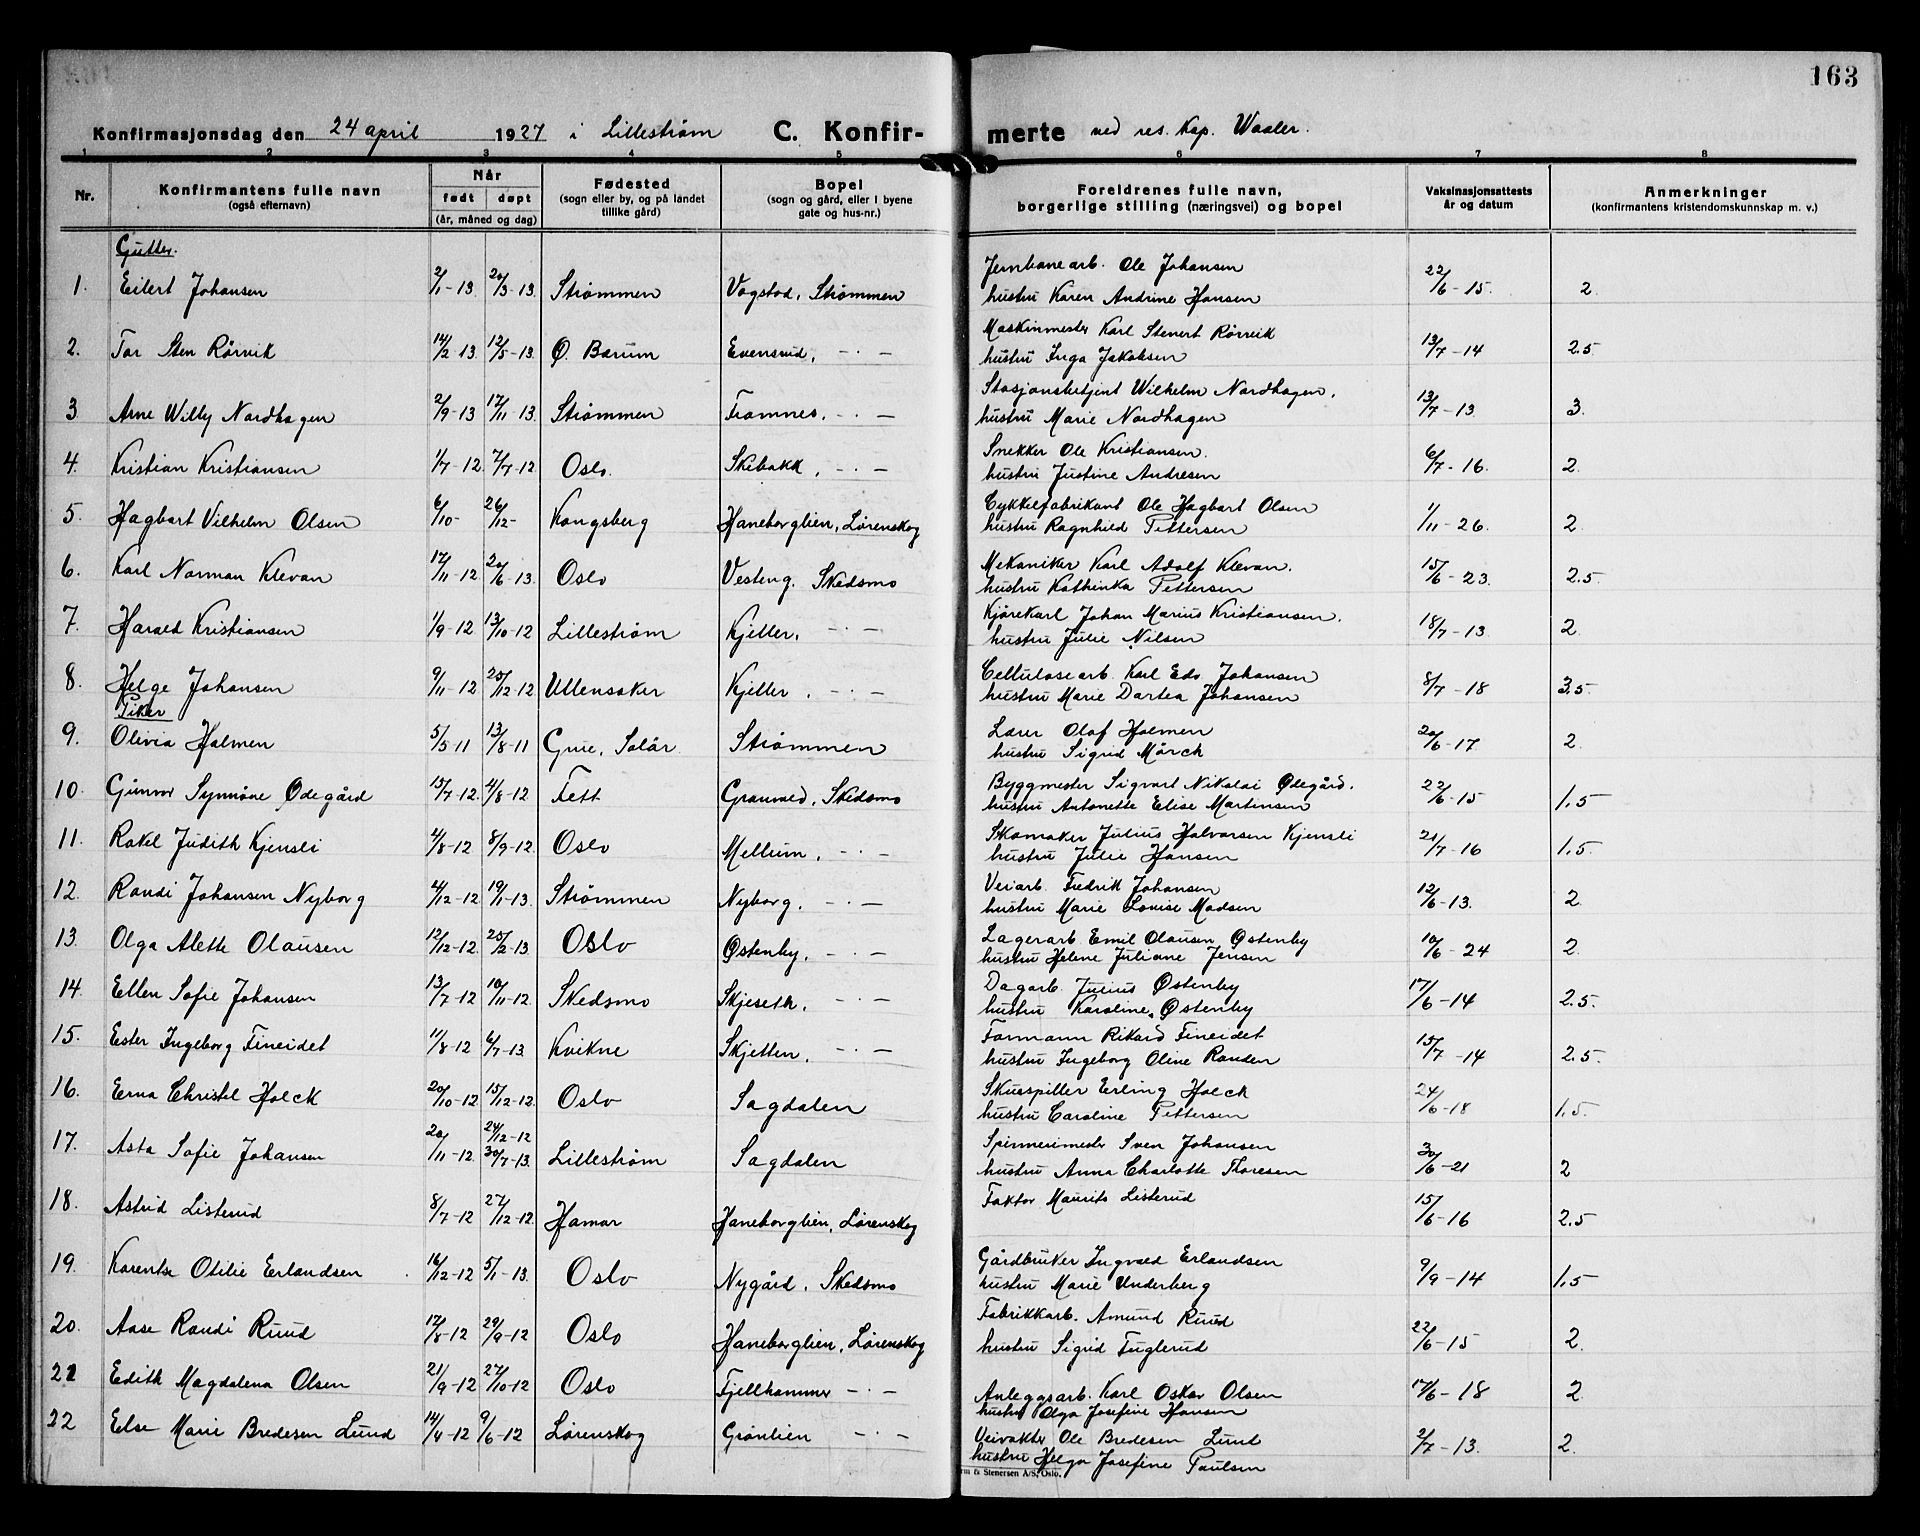 163
Konfirmasjonsdag den 24 april 1927 i Lillestrøm C. Konfir-merte ved res. kap. Waaler.
1 2 3 4 5 6 7 8
Nr. Konfirmantens fulle navn (også efternavn) Når født døpt (år, måned og dag) Fødested (sogn eller by, og på landet tillike gård) Bopel (sogn og gård, eller i byene gate og hus-nr.) Foreldrenes fulle navn, borgerlige stilling (næringsvei) og bopel Vaksinasjonsattests år og datum Anmerkninger (konfirmantens kristendomskunnskap m. v.)
Gutter.
1. Eilert Johansen 2/1-13. 20/3-13. Strømmen Vogstad, Strømmen Jernbanearb. Ole Johansen
hustru Karen Andrine Hansen 22/6-15. 2.
2. Tor Sten Rörvik 14/2-13. 12/5-13. Ø. Bærum Evensrud, -·- Maskinmester Karl Stenert Rörvik
hustru Inga Jakobsen 13/7-14 2.5
3 Arne Willy Nordhagen 2/9-13 17/11-13. Strømmen Framnes. -·- Stasjonsbetjent Wilhelm Nordhagen.
hustru Marie Nordhagen 13/7-13 3.
4. Kristian Kristiansen 1/7-12. 7/7-12. Oslo. Skibakk, -·- Snekker Ole Kristiansen.
hustru Justine Andresen 6/7-16. 2.
5. Hagbart Vilhelm Olsen 6/10- 26/12- Kongsberg Haneborglien, Lørenskog Cykkelfabrikant Ole Hagbart Olsen
hustru Ragnhild Pettersen 1/11-26. 2.
6. Karl Norman Klevan 17/11-12. 20/6-13. Oslo Vesteng. Skedsmo Mekaniker Karl Adolf Klevan.
hustru Kathinka Pettersen 15/6-23. 2.5.
7. Harald Kristiansen 1/9-12 13/10-12 Lillestrøm Kjeller, -·- Kjørekarl Johan Marius Kristiansen.
hustru Julie Nilsen 18/7-13 2.
8. Helge Johansen 9/11-12 25/12-12 Ullensaker Kjeller, -·- Cellulosearb. Karl Edv. Johansen
hustru Marie Dartea Johansen 8/7-18 3.5.
Piker
9. Olivia Holmen 5/5 11 13/8-11 Grue, Solør Strømmen Lærer Olaf Holmen
hustru Sigrid Mörck 20/6-17 2.
10. Gunvor Synnöve Ødegård 15/7-12. 4/8-12 Fett Granvold, Skedsmo Byggmester Sigvart Nikolai Ødegård.
hustru Antonette Elise Martinsen 22/6-15 1.5
11. Rakel Judith Kjensli 4/8-12 8/9-12. Oslo Mellum, -·- Skomaker Julius Halvorsen Kjensli
hustru Julie Hansen 21/7-16 1.5.
12. Randi Johansen Nyborg 4/12-12 19/1-13. Strømmen Nyborg. -·- Veiarb. Fredrik Johansen
hustru Marie Lovise Madsen 12/6-13. 2.
13. Olga Alette Olausen 12/12-12. 25/2-13 Oslo Østenby. -·- Lagerarb. Emil Olausen Østenby
hustru Helene Juliane Jensen 10/6-24 2.
14. Ellen Sofie Johansen 13/7-12 10/11-12. Skedsmo Skjeseth. -·- Dagarb. Julius Østenby
hustru Karoline Østenby 17/6-14 2.5.
15. Ester Ingeborg Fineidet 11/8-12 6/7-13. Kvikne Skjetten. -·- Formann Rikard Fineidet
hustru Ingeborg Oline Randen 15/7-14 2.5.
16. Erna Christel Holck 20/10-12 15/12-12. Oslo Sagdalen Skuespiller Erling Holck
hustru Caroline Pettersen 24/6-18 1.5.
17. Asta Sofie Johansen 20/11-12. 24/12-12 30/7-13. Lillestrøm Sagdalen Spinnerimester Sven Johansen
hustru Anna Charlotte Thoresen 30/6-21 2
18. Astrid Listerud 8/7-12 27/12-12. Hamar Haneborglien, Lørenskog Faktor Maurits Listerud 15/6-16 2.5
19. Karentze Otilie Erlandsen 16/12-12 5/1-13. Oslo Nygård. Skedsmo Gårdbruker Ingvald Erlandsen
hustru Marie Underberg 9/9-14 1.5
20. Aase Randi Ruud 17/8-12 29/9-12 Oslo Haneborglien, Lørenskog Fabrikkarb. Amund Ruud
hustru Sigrid Fuglerud 22/6-15 2.
21 Edith Magdalena Olsen 21/9-12 27/10-12 Oslo Fjellhammer -·- Anleggsarb. Karl Oskar Olsen
hustru Olga Josefine Hansen 17/6-18 2
22 Else Marie Bredesen Lund 14/4-12 9/6-12 Lørenskog Grønlien -·- Veivokter Ole Bredesen Lund
hustru Helga Josefine Paulsen 2/7-13. 2.
rm & Stenersen A/S, Oslo.